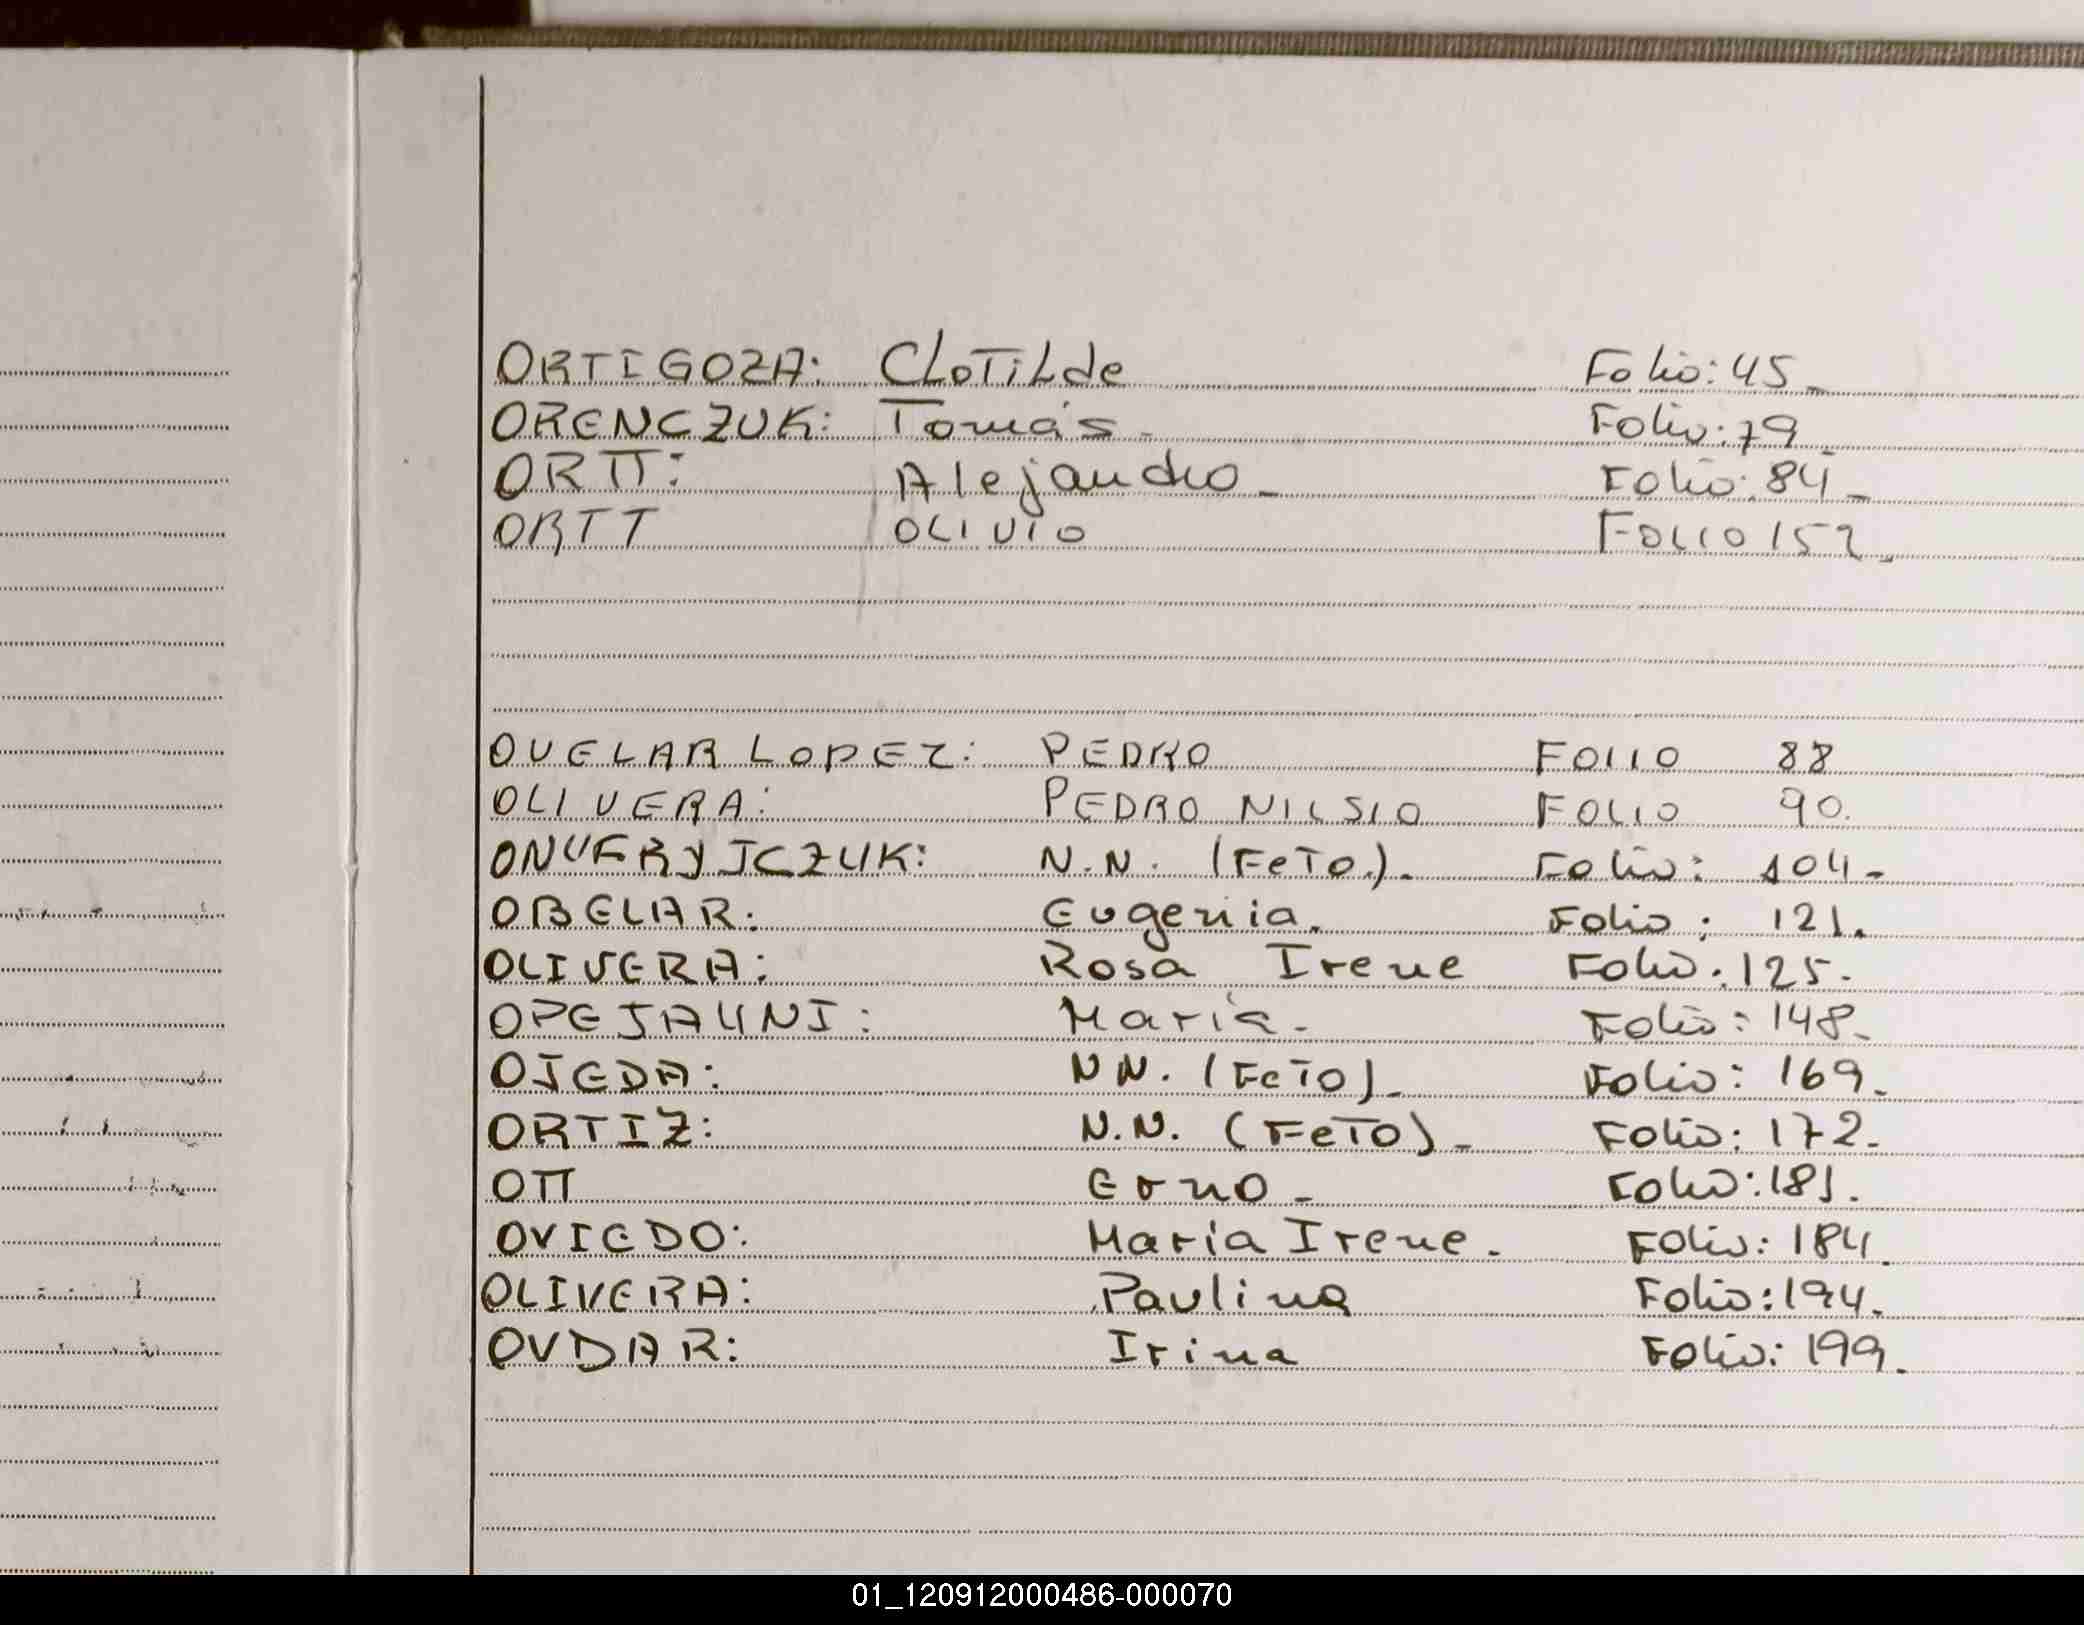 ORTIGOZA: CLOTILde Folio: 45_
ORENCZUK: Tomás. Folio: 79
ORTT: Alejandro_ Folio: 84_
ORTT OLIVIO FOLIO 152_
OVELAR LOPEZ: PEDRO FOLIO 88
OLIVERA: PEDRO NILSIO FOLIO 90.
ONUFRYJCZUK: N.N. (FeTo)_ Folio: 104_
OBELAR: Eugenia. Folio: 121.
OLIVERA: Rosa Irene Folio: 125.
OPEJAUNI: María. Folio: 148_
OJEDA: NN. (FeTo)_ Folio: 169_
ORTIZ: N.N. (FeTO)_ Folio: 172.
OTT Erno_ Folio: 181.
OVIEDO: Maria Irene. Folio: 184_
OLIVERA: Paulina Folio: 194.
OVDAR: Irina Folio: 199.
01_120912000486-000070